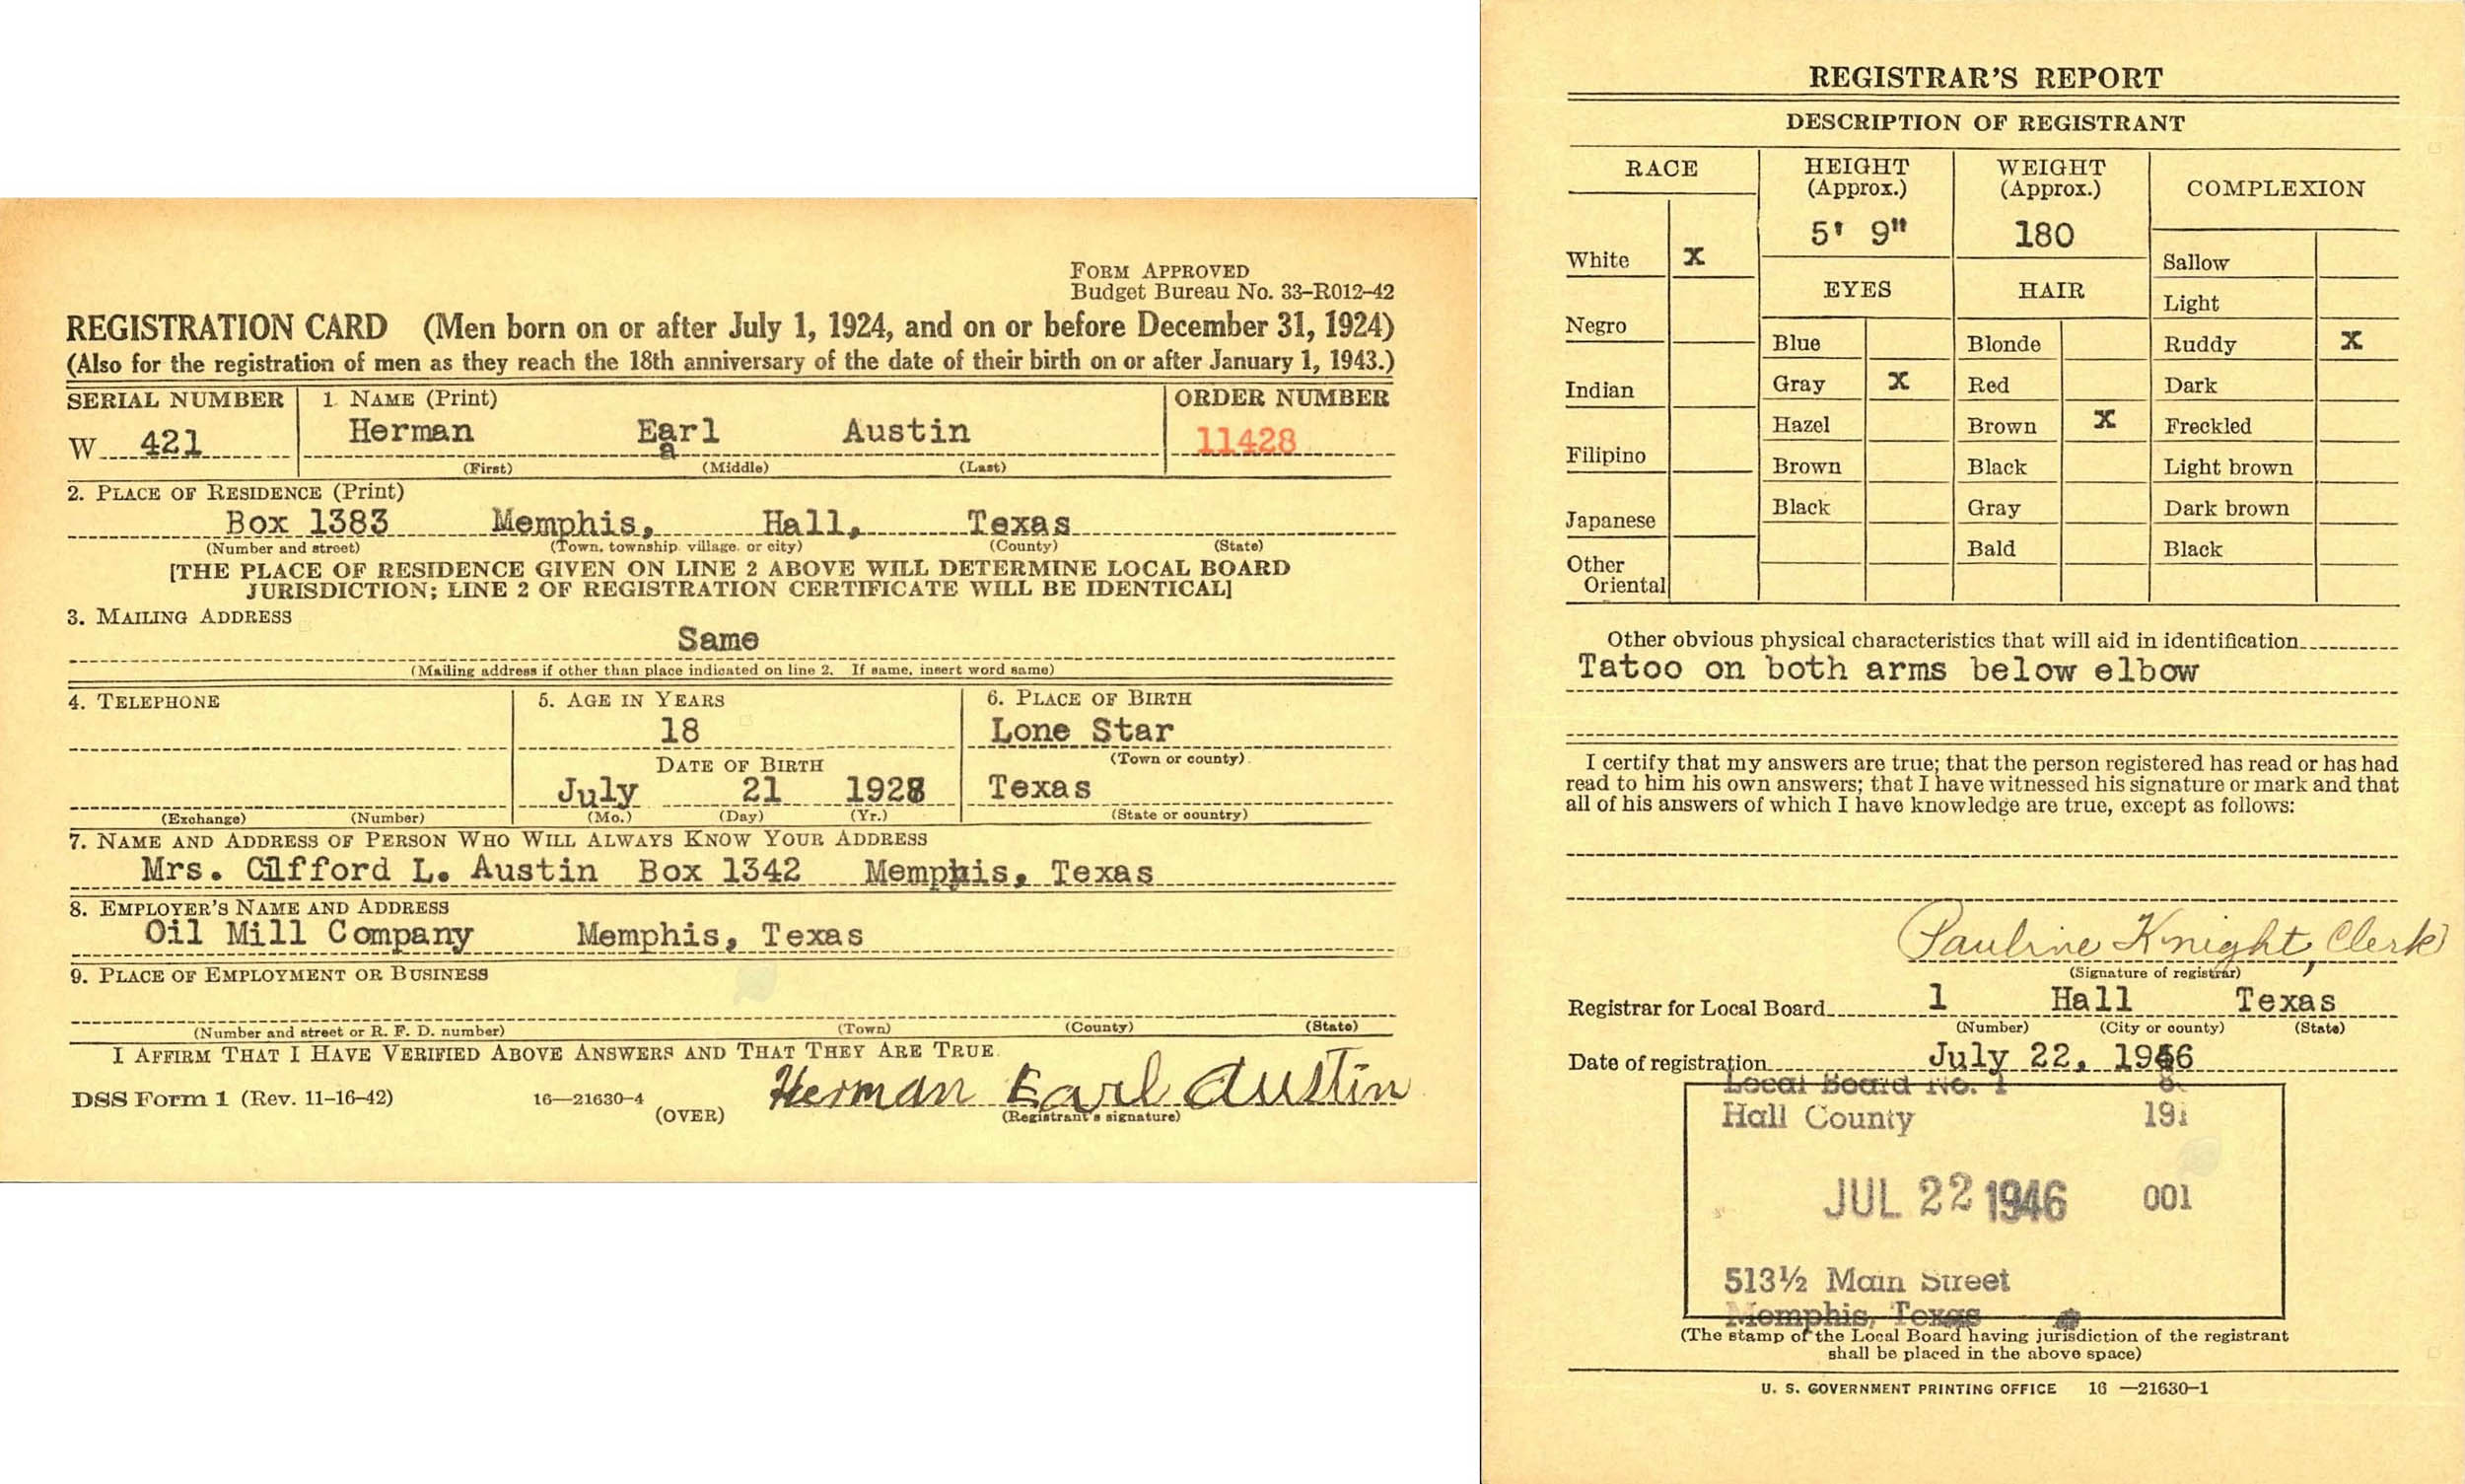 FORM APPROVED
Budget Bureau No. 33-R012-42
REGISTRATION CARD (Men born on or after July 1, 1924, and on or before December 31, 1924)
(Also for the registration of men as they reach the 18th anniversary of the date of their birth on or after January 1, 1943.)
SERIAL NUMBER 1 NAME (Print) ORDER NUMBER
W 421 Herman Earl Austin 11428
a
(First) (Middle) (Last)
2. PLACE OF RESIDENCE (Print)
Box 1383 Memphis, Hall, Texas
(Number and street) (Town, township, village, or city) (County) (State)
[THE PLACE OF RESIDENCE GIVEN ON LINE 2 ABOVE WILL DETERMINE LOCAL BOARD
JURISDICTION; LINE 2 OF REGISTRATION CERTIFICATE WILL BE IDENTICAL]
3. MAILING ADDRESS
Same
(Mailing address if other than place indicated on line 2. If same, insert word same)
4. TELEPHONE 5. AGE IN YEARS 6. PLACE OF BIRTH
18 Lone Star
DATE OF BIRTH (Town or county)
July 21 1928 Texas
(Exchange) (Number) (Mo.) (Day) (Yr.) (State or country)
7. NAME AND ADDRESS OF PERSON WHO WILL ALWAYS KNOW YOUR ADDRESS
Mrs. Clifford L. Austin Box 1342 Memphis, Texas
8. EMPLOYER'S NAME AND ADDRESS
Oil Mill Company Memphis, Texas
9. PLACE OF EMPLOYMENT OR BUSINESS
(Number and street or R. F. D. number) (Town) (County) (State)
I AFFIRM THAT I HAVE VERIFIED ABOVE ANSWERS AND THAT THEY ARE TRUE.
Herman Earl Austin
DSS Form 1 (Rev. 11-16-42) 16—21630-4 (OVER) (Registrant's signature)
REGISTRAR'S REPORT
DESCRIPTION OF REGISTRANT
RACE HEIGHT (Approx.) WEIGHT (Approx.) COMPLEXION
5' 9" 180
White X Sallow
EYES HAIR Light
Negro
Blue Blonde Ruddy X
Indian Gray X Red Dark
Hazel Brown X Freckled
Filipino Brown Black Light brown
Japanese Black Gray Dark brown
Bald Black
Other
Oriental
Other obvious physical characteristics that will aid in identification
Tatoo on both arms below elbow
I certify that my answers are true; that the person registered has read or has had
read to him his own answers; that I have witnessed his signature or mark and that
all of his answers of which I have knowledge are true, except as follows:
Pauline Knight, Clerk
(Signature of registrar)
Registrar for Local Board 1 Hall Texas
(Number) (City or county) (State)
Date of registration July 22, 1946
Local Board No. 1
Hall County 191
JUL 22 1946 001
513½ Main Street
Memphis, Texas
(The stamp of the Local Board having jurisdiction of the registrant
shall be placed in the above space)
U. S. GOVERNMENT PRINTING OFFICE 16—21630-1